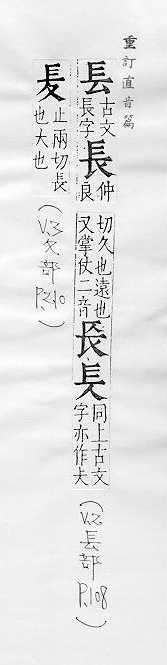 重訂直音篇
镸 古文長字 長 仲良切久也遠也又掌仗二音 同上古文字亦作 (V.2 長部 P.108)
止兩切長也大也 (V.3 夂部 P.210)